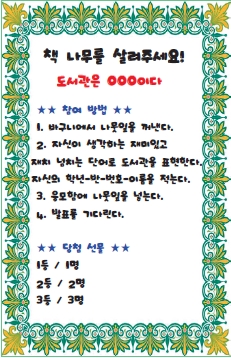 책 나무를 살려주세요!
도서관은 OOO이다
★★ 참여 방법 ★★
1. 바구니에서 나뭇잎을 꺼낸다.
2. 자신이 생각하는 재미있고
재치 넘치는 단어로 도서관을 표현한다.
자신의 학년-반-번호-이름을 적는다.
3. 응모함에 나뭇잎을 넣는다.
4. 발표를 기다린다.
★★ 당첨 선물 ★★
1등 / 1명
2등 / 2명
3등 / 3명